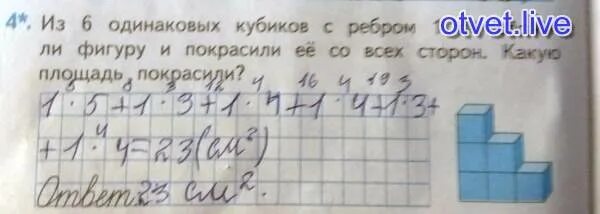 4*. Из 6 одинаковых кубиков с ребром 1
otvet.live
ли фигуру и покрасили её со всех сторон. Какую
площадь покрасили?
5 8 3 12 4 16 4 19 3
1·5+1·3+1·4+1·4+1·3+
+1·4=23(см²)
Ответ 23 см².